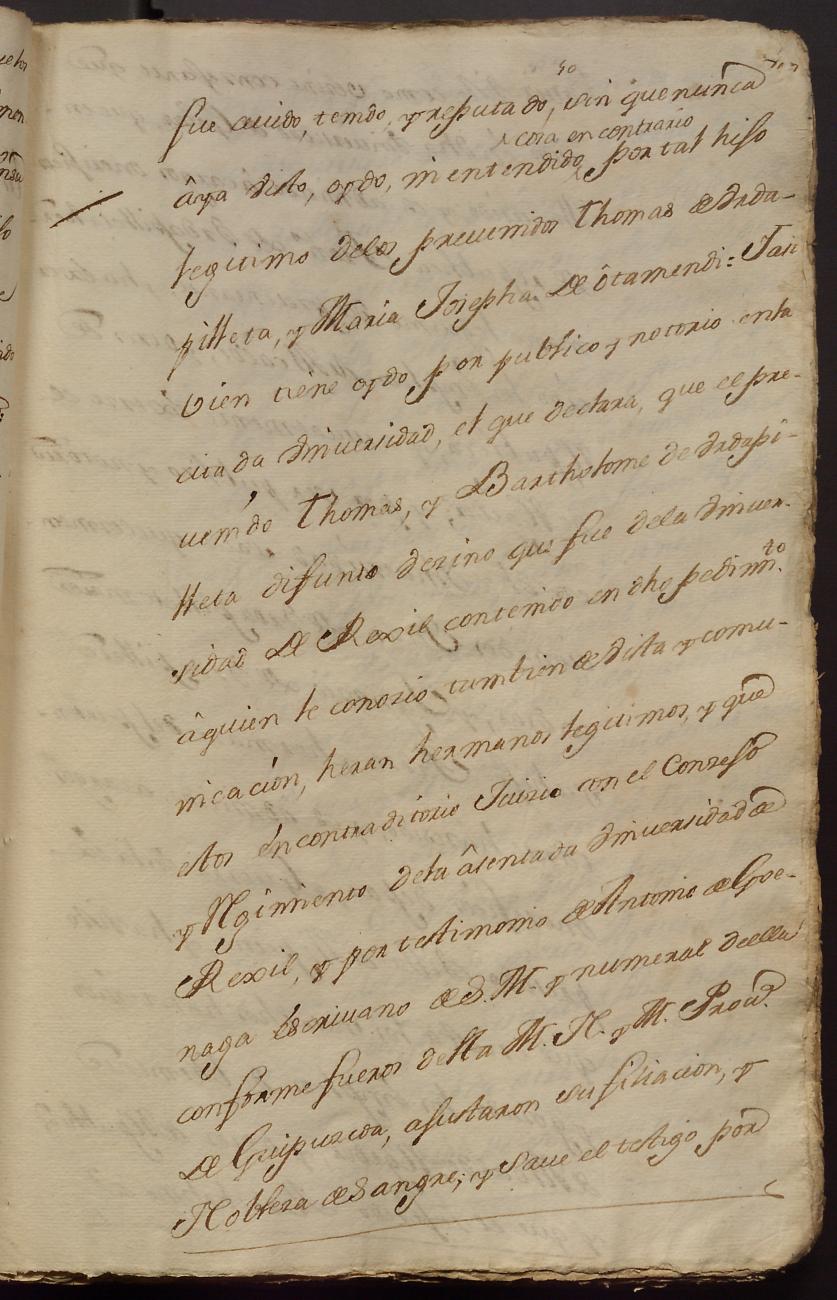 fue auido, tenido, y reputado, sin que nunca
cosa en contrario
âya visto, oydo, ni entendido, por tal hijo
legitimo delos preuenidos Thomas de Urda-
pilleta, y Maria Josepha De ôtamendi: Tan
vien tiene oydo por publico y notorio enla
citada Vniuersidad, el que declara, que el pre-
uenido Thomas, y Bartholome de Urdapi-
lleta difunto vezino que fue dela Vniuer-
sidad De Rexil contenido en dho pedimto.
âquien le conozio tambien de vista y comu-
nicación, heran hermanos legitimos, y que
estos én contraditorio Juizio con el Conzejo
y Rgimiento dela âsentada Vniuersidad de
Rexil, y por testimonio de Antonio de Goe-
naga Escriuano de S. M. y numeral de ella
conforme fueros desta M. N. y M. L. Prou.a
De Guipuzcoa, ajustaron su filiacion, y
Nobleza de Sangre; y saue el testigo por